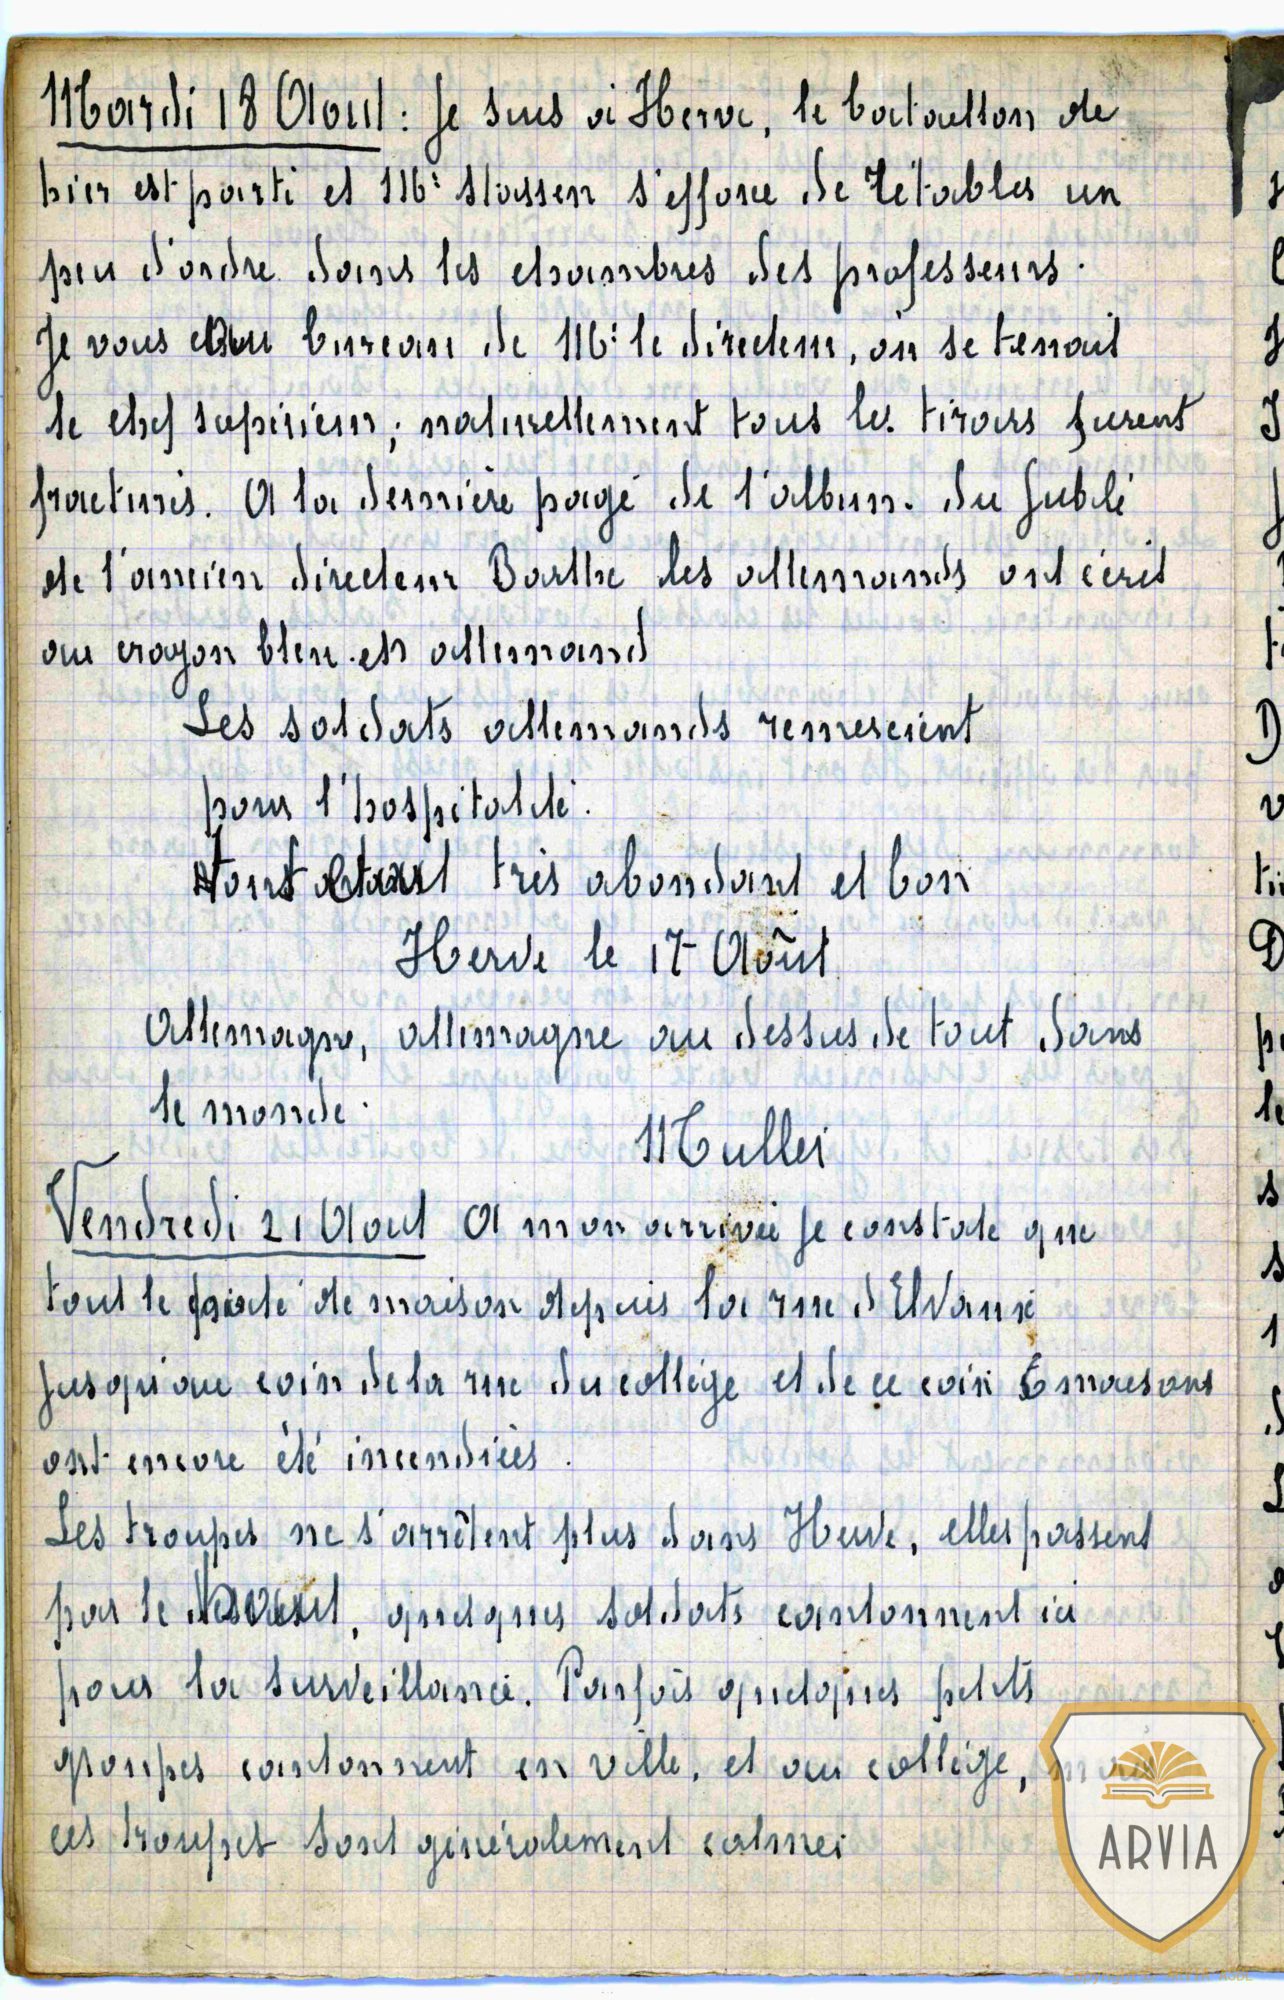 Mardi 18 Aout : Je suis à Herve, le bataillon de
hier est parti et Mr Stassen s'efforce de rétablir un
peu d'ordre dans les chambres des professeurs.
Je vous bureau de Mr le directeur, où se tenait
le chef supérieur ; naturellement tous les tiroirs furent
fracturés. A la dernière page de l'album du Jubilé
de l'ancien directeur Barthe les allemands ont écrit
au crayon bleu en allemand
Les soldats allemands remercient
pour l'hospitalité.
Tout était très abondant et bon
Herve le 17 Août
Allemagne, allemagne au dessus de tout dans
le monde.
Muller
Vendredi 21 Aout A mon arrivée je constate que
tout le de maison depuis la rue d'Elvaux
jusqu'au coin de la rue du collège et de ce coin 6 maisons
ont encore été incendiées.
Les troupes ne s'arrêtent plus dans Herve, elles passent
par le, quelques soldats cantonnent ici
pour la surveillance. Parfois quelques petits
groupes cantonnent en ville, et au collège, mais
ces troupes sont généralement calmes
ARVIA